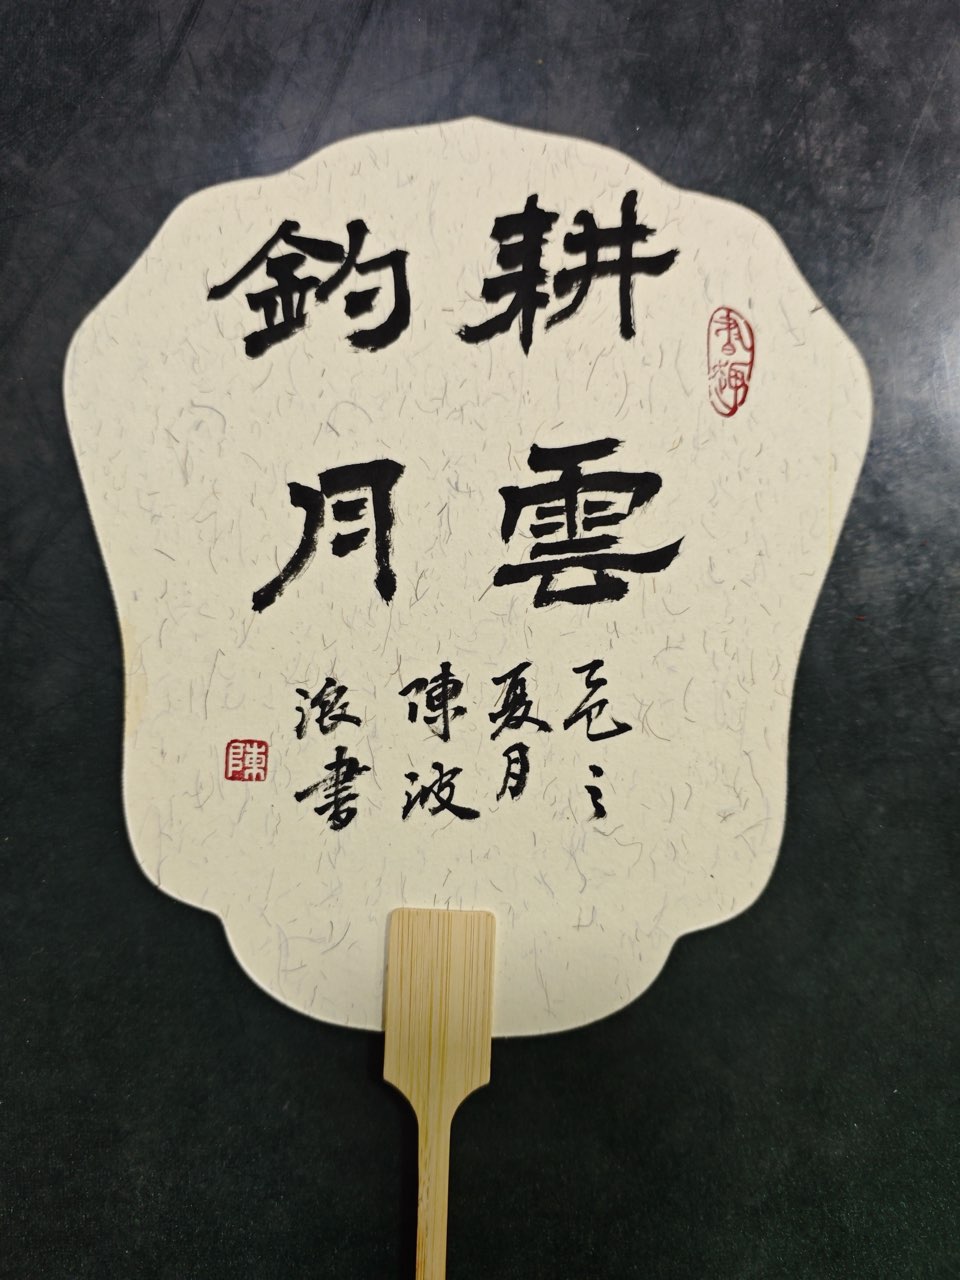 耕雲
釣月
乙巳之
夏月
陳波
浪書
陳